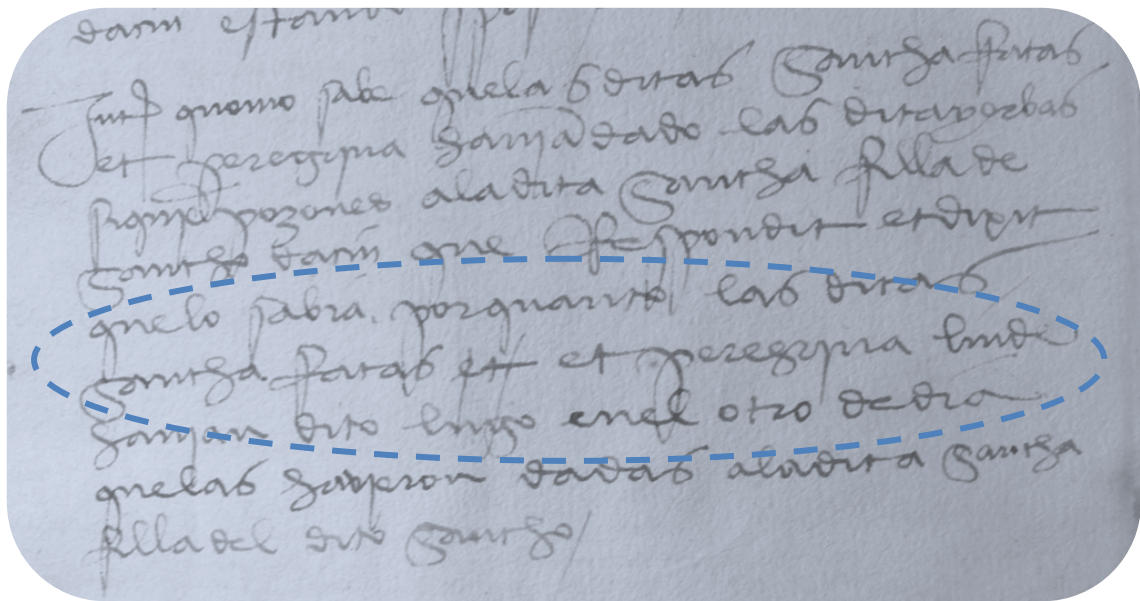 darin estando
Jntus quomo sabe quelas ditas Sancha Fatas
et peregrina hauja dado las ditas yerbas
pozones aladita Sancha filla de
Sancho darin que Respondit et dixit
quelo sabia. porquanto las ditas
Sancha Fatas et et peregrina lende
haujan dito luego enel otro dedia
quelas hauyeron dadas aladita Sancha
filla del dito Sancho